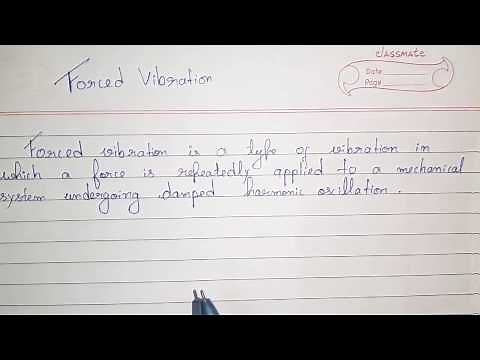 classmate
Date
Page
Forced Vibration
Forced vibration is a type of vibration in
which a force is repeatedly applied to a mechanical
system undergoing damped harmonic oscillation.